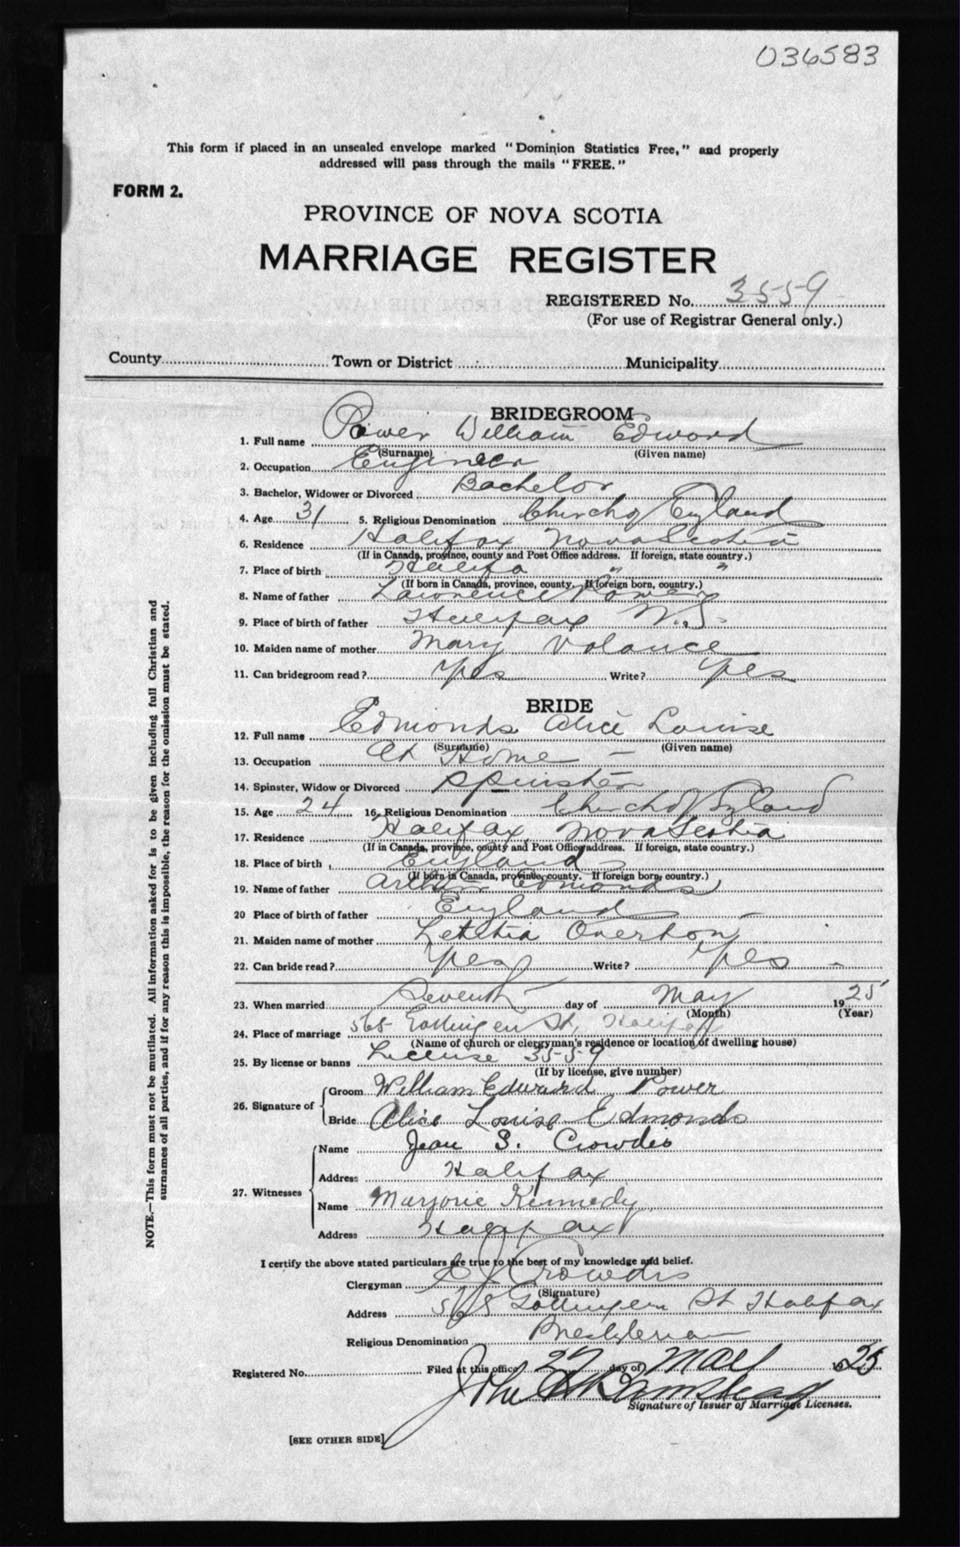 036583
This form if placed in an unsealed envelope marked "Dominion Statistics Free," and properly
addressed will pass through the mails "FREE."
FORM 2.
PROVINCE OF NOVA SCOTIA
MARRIAGE REGISTER
REGISTERED No. 3559
(For use of Registrar General only.)
County Town or District Municipality
BRIDEGROOM
1. Full name Power William Edward
(Surname) (Given name)
2. Occupation Engineer
3. Bachelor, Widower or Divorced Bachelor
4. Age 31 5. Religious Denomination Church of England
6. Residence Halifax Nova Scotia
(If in Canada, province, county and Post Office address. If foreign, state country.)
7. Place of birth Halifa " "
(If born in Canada, province, county. If foreign born, country.)
8. Name of father Lawrence Power
9. Place of birth of father Halifax N.S.
10. Maiden name of mother Mary Valance
11. Can bridegroom read? Yes Write? Yes
BRIDE
12. Full name Edmonds Alice Louise
(Surname) (Given name)
13. Occupation At Home —
14. Spinster, Widow or Divorced Spinster
15. Age 24 16. Religious Denomination Church of England
17. Residence Halifax, Nova Scotia
(If in Canada, province, county and Post Office address. If foreign, state country.)
18. Place of birth England
(If born in Canada, province, county. If foreign born, country.)
19. Name of father Arthur Edmonds
20 Place of birth of father England —
21. Maiden name of mother Letetia Overton
22. Can bride read? Yes Write? Yes —
23. When married Seventh day of May 1925
(Month) (Year)
24. Place of marriage 568 Gottingen St, Halifax
(Name of church or clergyman's residence or location of dwelling house)
25. By license or banns License 3559
(If by license, give number)
26. Signature of Groom William Edward Power
Bride Alice Louise Edmonds
27. Witnesses Name Jean S. Crowdis
Address Halifax
Name Marjorie Kennedy
Address Halifax
I certify the above stated particulars are true to the best of my knowledge and belief.
Clergyman Crowdis
(Signature)
Address 568 Gottingen St Halifax
Religious Denomination Presbyterian
Registered No. Filed at this office 27 day of May 1925
Signature of Issuer of Marriage Licenses.
[SEE OTHER SIDE]
NOTE.—This form must not be mutilated. All information asked for is to be given including full Christian and
surnames of all parties, and if for any reason this is impossible, the reason for the omission must be stated.